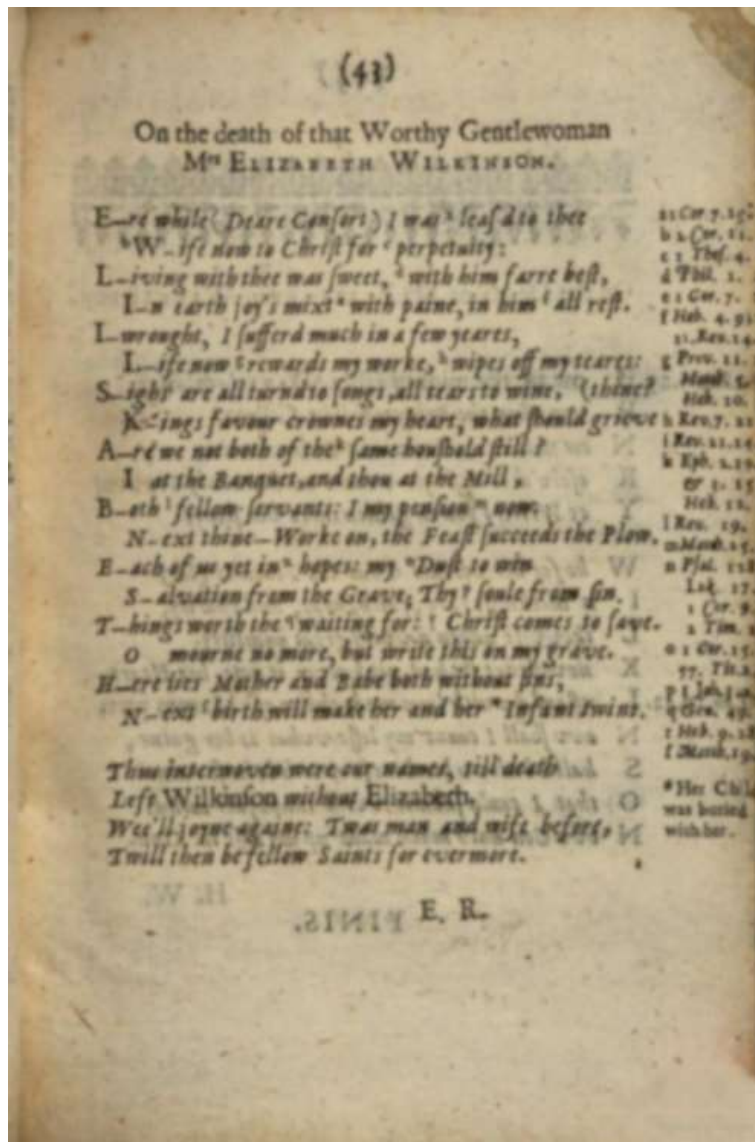 (43)
On the death of that Worthy Gentlewoman
Mrs ELIZABETH WILKINSON.
E—re while (Deare Consort) I was a leas'd to thee
b W—ife now to Christ for c perpetuity:
L—iving with thee was sweet, d with him farre best,
I—n earth joy's mixt e with paine, in him f all rest.
I—wrought, I sufferd much in a few yeares,
L—ife now g rewards my worke, h wipes off my teares:
S—ighs are all turnd to songs, all tears to wine, (thine?
K—ings favour crownes my heart, what should grieve
A—re we not both of the k same houshold still?
I at the Banquet, and thou at the Mill,
B—oth l fellow servants: I my pension m now.
N—ext thine—Worke on, the Feast succeeds the Plow.
E—ach of us yet in n hopes: my o Dust to win
S—alvation from the Grave; Thy p soule from sin.
T—hings worth the q waiting for: r Christ comes to save.
O mourne no more, but write this on my grave.
H—ere lies Mother and Babe both without sins,
N—ext s birth will make her and her * Infant twins.
Thus interwoven were our names, till death
Left Wilkinson without Elizabeth.
Wee'll joyne againe: Twas man and wife before,
Twill then be fellow Saints for evermore.
E. R.
a 1 Cor. 7.
b 2 Cor. 11.
c 1 Thes. 4.
d Phil. 1.
e 1 Cor. 7.
f Heb. 4. 9.
Rev. 14
g Prov. 11.
Math. 5.
Heb. 10.
h Rev. 7.
i Rev. 21.
k Eph. 2.
& 3. 15
Heb. 12.
l Rev. 19.
m Math. 25.
n Psal.
Luk. 17
1 Cor.
2 Tim.
o 1 Cor. 15.
Tit. 2
p 1 Joh.
q Gen. 49.
r Heb. 9. 28
s Math. 19.
* Her Child
was buried
with her.